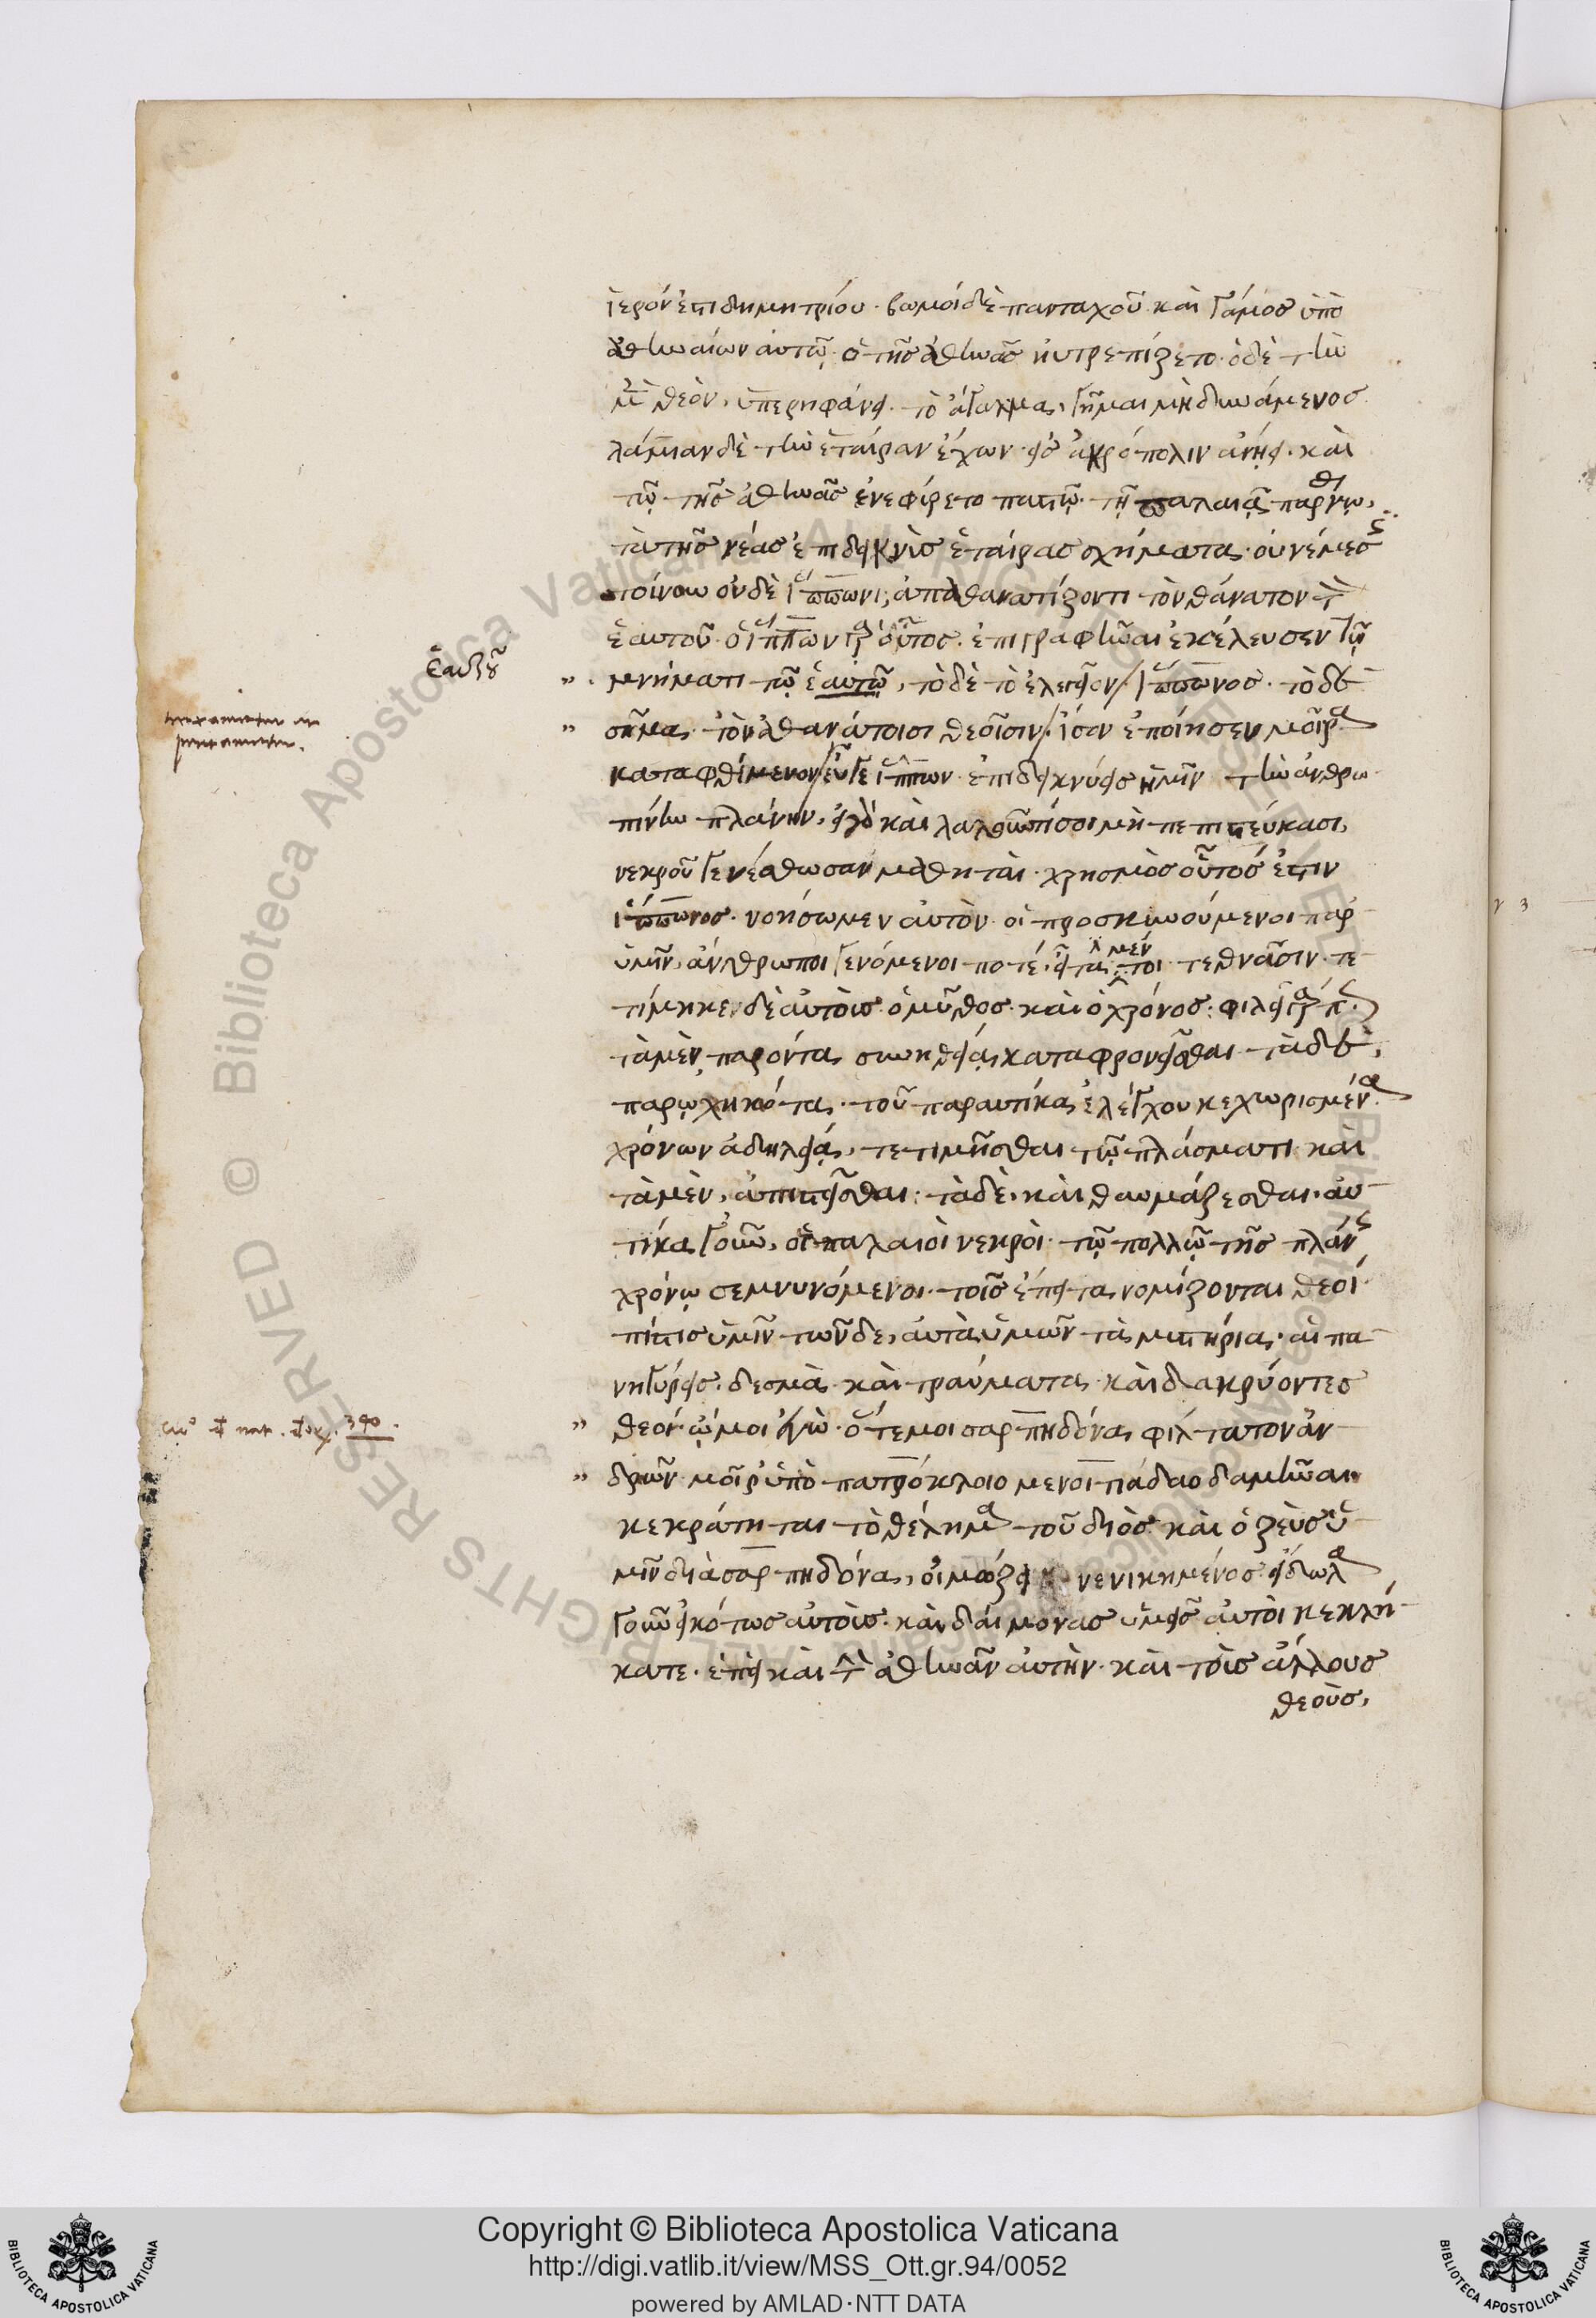 ἱερόν ἐστι δημητρίου· βωμοὶ δὲ πανταχοῦ· καὶ γάμος ὑπὸ
ἀθηναίων αὐτῷ· ὁ τῆς ἀθηνᾶς ηὐτρεπίζετο· ὁ δὲ τὴν
μὲν θεὸν, ὑπερηφάνει· τὸ ἄγαλμα, γῆμαι μὴ δυνάμενος·
λάμιαν δὲ τὴν ἑταίραν ἔχων εἰς ἀκρόπολιν ἀνήει· καὶ
τῷ τῆς ἀθηνᾶς ἐνεφύρετο παστῷ· τῇ παλαιᾷ παρθένῳ,
τὰ τῆς νέας ἐπιδεικνὺς ἑταίρας σχήματα· οὐ νέμεσις
τοίνυν οὐδὲ ἵππωνι, ἀπαθανατίζοντι τὸν θάνατον τὸν
ἑαυτοῦ· ὁ ἵππων γὰρ οὗτος· ἐπιγραφῆναι ἐκέλευσεν τῷ
μνήματι τῷ ἑαυτῷ, τὸ δὲ τὸ ἐλεγεῖον / ἵππωνος· τὸ δὲ
σῆμα, τὸν ἀθανάτοισι θεοῖσιν / ἶσον ἐποίησεν μοῖρα
καταφθίμενον / εὖ γε ἵππων· ἐπιδεικνύεις ἡμῖν τὴν ἀνθρω
πίνην πλάνην, εἰ γὰρ καὶ λαλοῦντί σοι μὴ πεπιστεύκασι,
νεκροῦ γενέσθωσαν μαθηταί· χρησμὸς οὗτός ἐστιν
ἵππωνος· νοήσωμεν αὐτόν· οἱ προσκυνούμενοι παρ'
ὑμῖν, ἄνθρωποι γενόμενοι ποτέ· εἶτα μέν τοι τεθνᾶσιν· τε
τίμηκεν δὲ αὐτοὺς ὁ μῦθος· καὶ ὁ χρόνος· φιλεῖ γάρ π
τὰ μὲν παρόντα, συνηθείᾳ καταφρονεῖσθαι· τὰ δὲ,
παρῳχηκότα, τοῦ παραυτίκα ἐλέγχου κεχωρισμένα
χρόνων ἀδηλείᾳ, τετιμῆσθαι τῷ πλάσματι· καὶ
τὰ μὲν, ἀπιστεῖσθαι· τὰ δὲ, καὶ θαυμάζεσθαι· αὐ
τίκα γοῦν, οἱ παλαιοὶ νεκροὶ· τῷ πολλῷ τῆς πλάνης
χρόνῳ σεμνυνόμενοι· τοῖς ἔπειτα νομίζονται θεοί·
πίστις ὑμῖν τῶνδε, αὐτὰ ὑμῶν τὰ μυστήρια· αἱ πα
νηγύρεις· δεσμὰ καὶ τραύματα καὶ δακρύοντες
θεοί· ὤμοι ἐγὼ· ὅτε μοι σαρπηδόνα φίλτατον ἀν
δρῶν· μοῖρ' ὑπὸ πατρόκλοιο μενοιτιάδαο δαμῆναι
κεκράτηται τὸ θέλημα τοῦ διὸς· καὶ ὁ ζεὺς ὑ
μῖν διὰ σαρπηδόνα, οἰμώζει νενικημένος· εἴδωλα
γοῦν εἰκότως αὐτοὺς· καὶ δαίμονας ὑμεῖς αὐτοὶ κεκλή
κατε· ἐπεὶ καὶ τὴν ἀθηνᾶν αὐτὴν· καὶ τοὺς ἄλλους
θεούς,
ἑαυτοῦ
390.
Copyright © Biblioteca Apostolica Vaticana
http://digi.vatlib.it/view/MSS_Ott.gr.94/0052
powered by AMLAD·NTT DATA
BIBLIOTECA APOSTOLICA VATICANA
BIBLIOTECA APOSTOLICA VATICANA